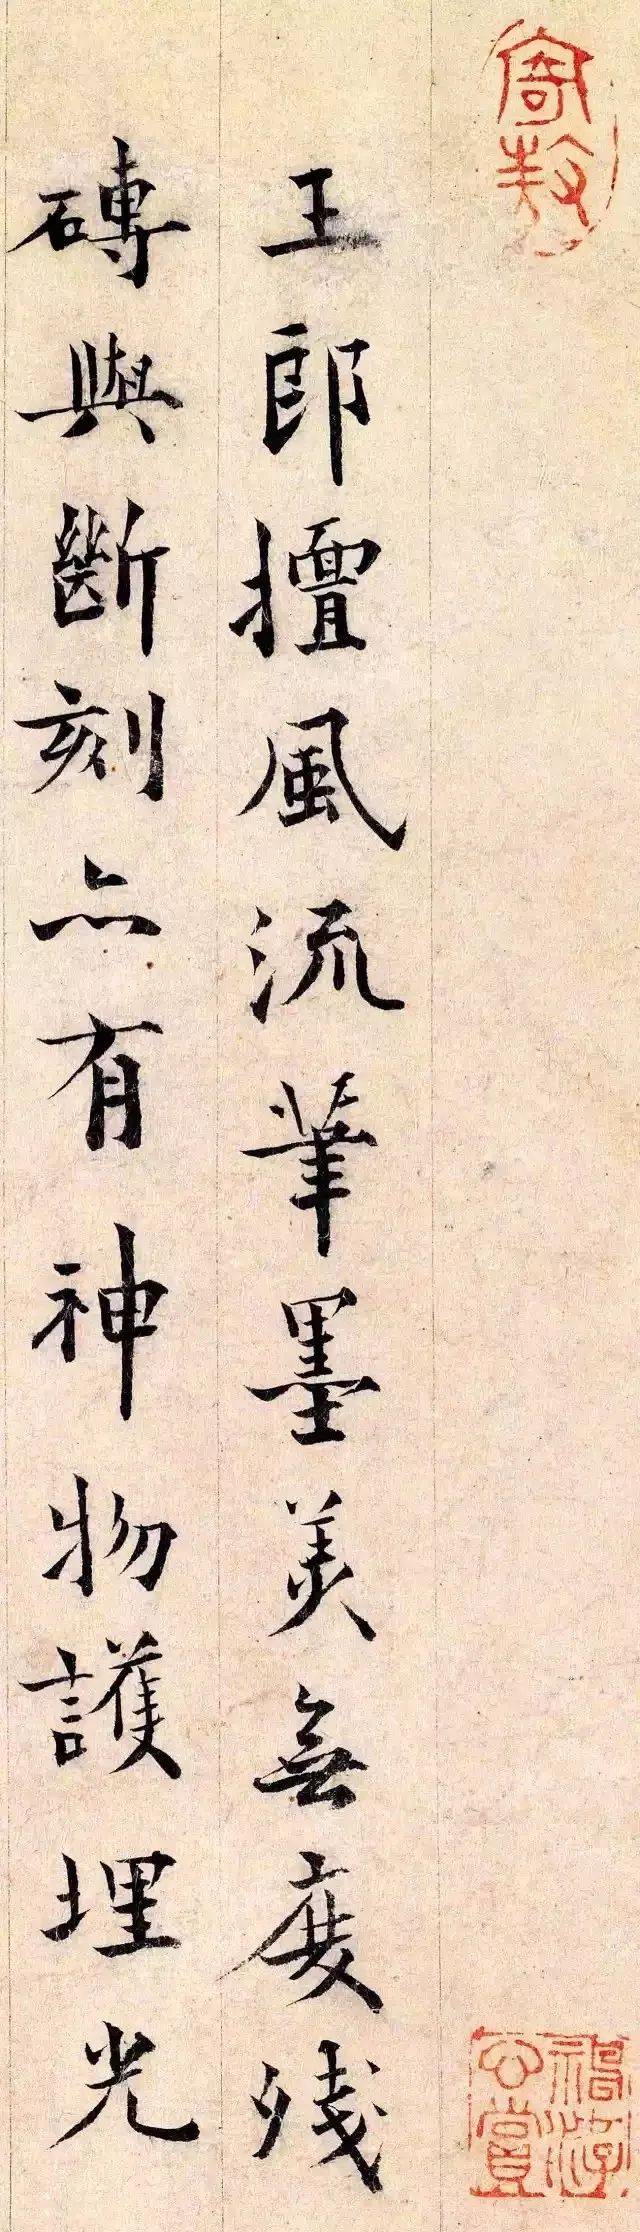 寄敖
王郎擅風流筆墨美無度殘
磚與斷刻亦有神物護埋光
神游心賞